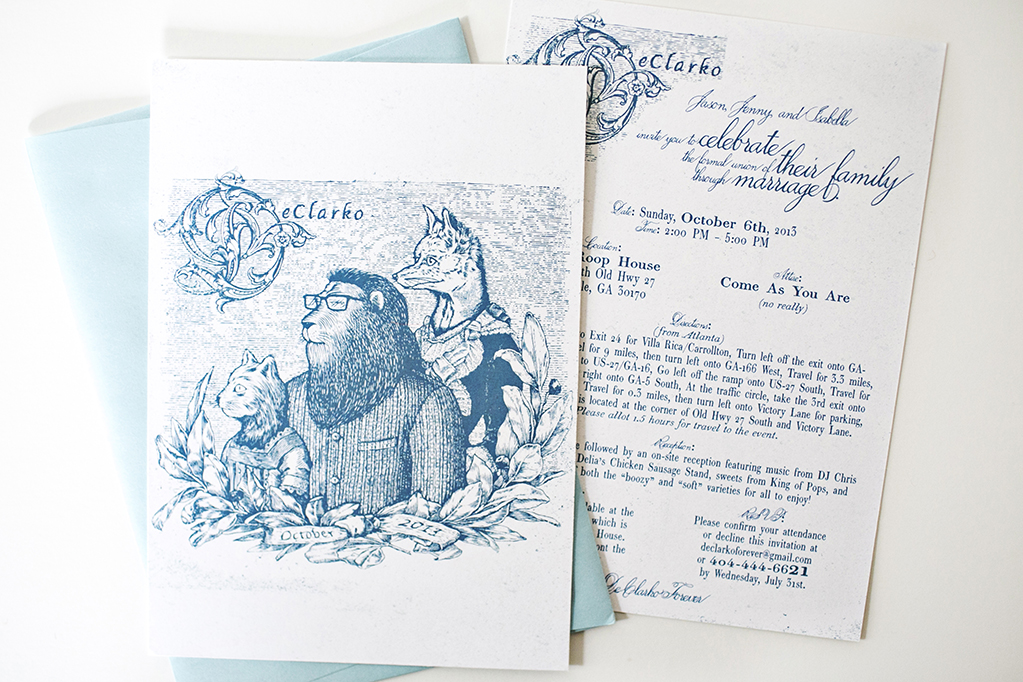 DeClarko
October 2013
DeClarko
Jason, Jenny, and Isabella
invite you to celebrate
the formal union of their family
through marriage.
Date: Sunday, October 6th, 2013
Time: 2:00 PM – 5:00 PM
Location:
oop House
th Old Hwy 27
le, GA 30170
Attire:
Come As You Are
(no really)
Directions:
(from Atlanta)
o Exit 24 for Villa Rica/Carrollton, Turn left off the exit onto GA-
l for 9 miles, then turn left onto GA-166 West, Travel for 3.3 miles,
to US-27/GA-16, Go left off the ramp onto US-27 South, Travel for
right onto GA-5 South, At the traffic circle, take the 3rd exit onto
Travel for 0.3 miles, then turn left onto Victory Lane for parking,
is located at the corner of Old Hwy 27 South and Victory Lane.
Please allot 1.5 hours for travel to the event.
Reception:
e followed by an on-site reception featuring music from DJ Chris
Delia's Chicken Sausage Stand, sweets from King of Pops, and
both the "boozy" and "soft" varieties for all to enjoy!
lable at the
which is
House.
ont the
R.S.V.P.:
Please confirm your attendance
or decline this invitation at
declarkoforever@gmail.com
or 404-444-6621
by Wednesday, July 31st.
DeClarko Forever